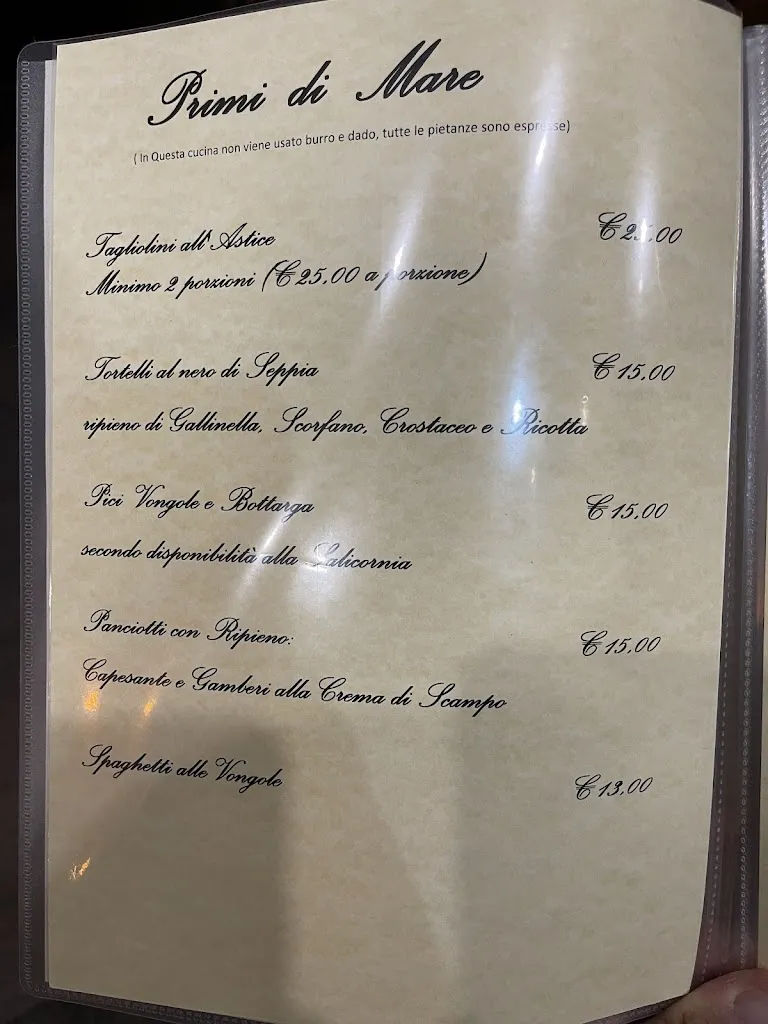 Primi di Mare
( In Questa cucina non viene usato burro e dado, tutte le pietanze sono espresse)
Tagliolini all'Astice € 25.00
Minimo 2 porzioni (€ 25.00 a porzione)
Tortelli al nero di Seppia € 15.00
ripieno di Gallinella, Scorfano, Crostaceo e Ricotta
Pici Vongole e Bottarga € 15.00
secondo disponibilità alla Salicornia
Panciotti con Ripieno: € 15.00
Capesante e Gamberi alla Crema di Scampo
Spaghetti alle Vongole € 13.00